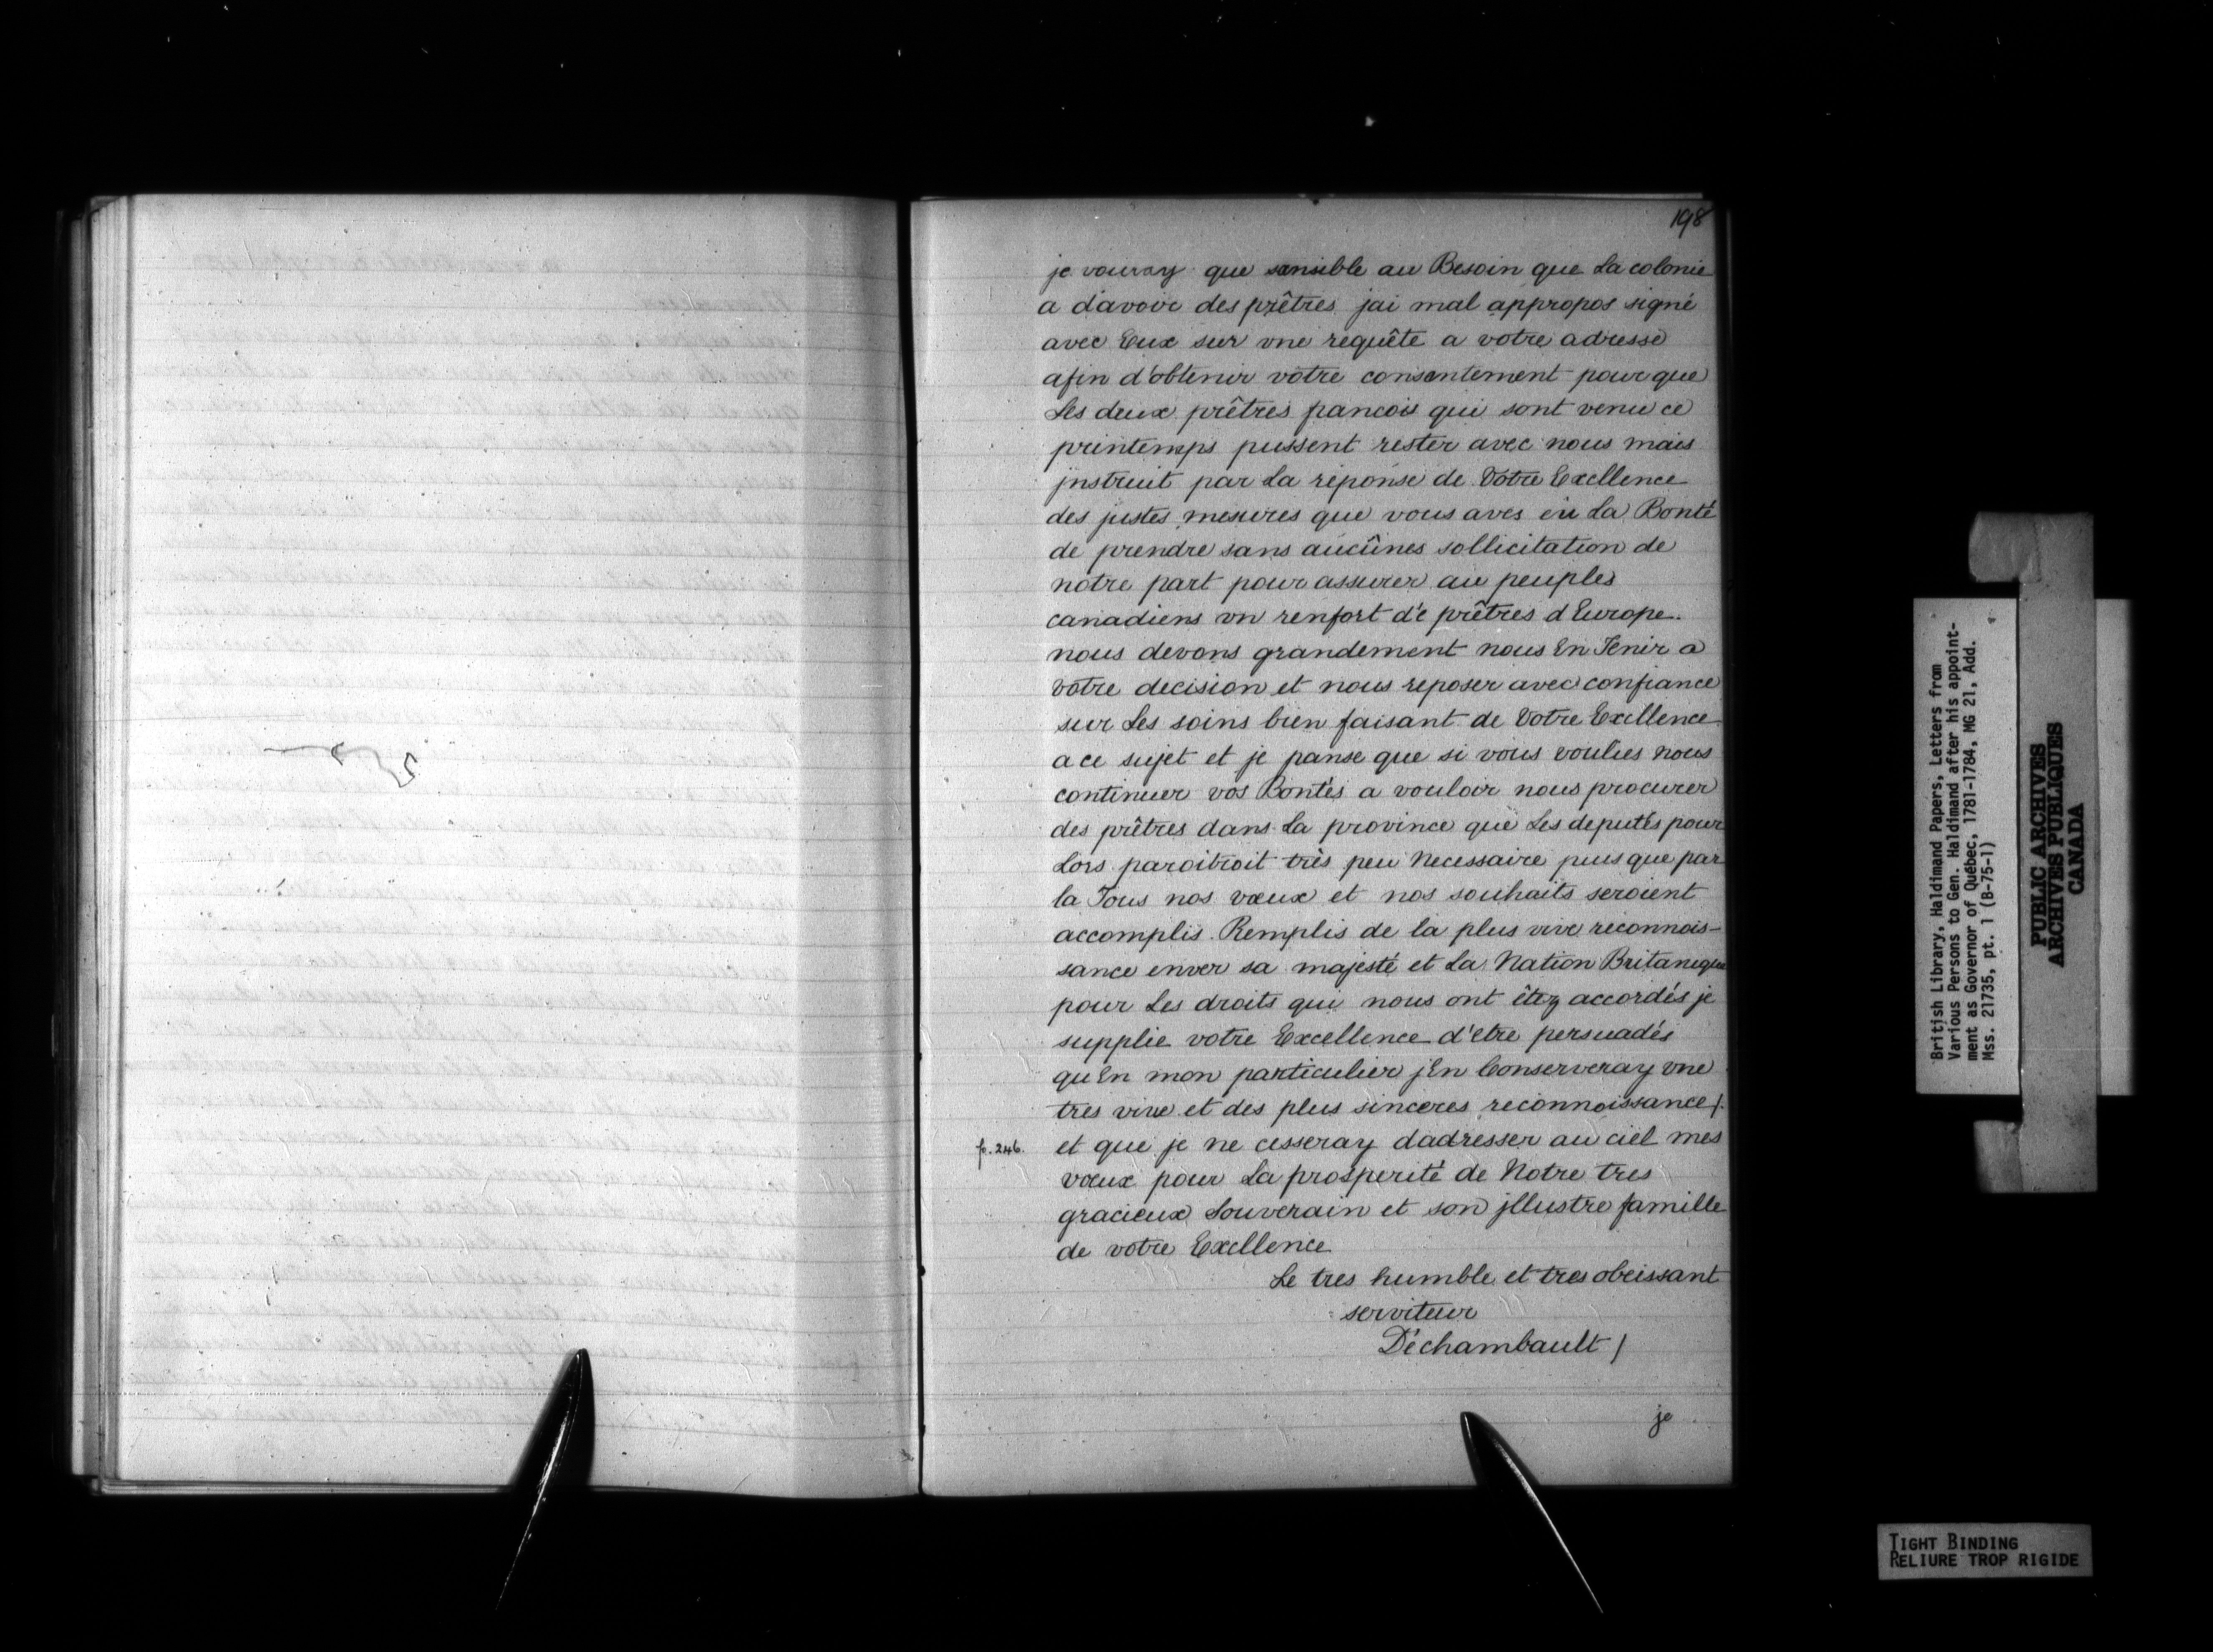 198
je vouray que sensible au Besoin que La colonie
a d'avoir des prêtres jai mal appropos signé
avec Eux sur vne requête a votre adresse
afin d'obtenir votre consentement pour que
Les deux prêtres francois qui sont venu ce
printemps pussent rester avec nous mais
jnstruit par La réponse de Votre Excellence
des justes mesures que vous aves eü La Bonté
de prendre sans aucünes sollicitation de
notre part pour assurer au peuples
canadiens vn renfort de prêtres d Europe.
nous devons grandement nous En Tenir a
votre decision et nous reposer avec confiance
sur Les soins bien faisant de Votre Excllence
a ce sujet et je panse que si vous voulies nous
continuer vos Bontés a vouloir nous procurer
des prêtres dans La province que Les deputés pour
Lors paroitroit très peu Necessaire puis que par
la Tous nos vœux et nos souhaits seroient
accomplis. Remplis de la plus vive reconnois-
sance enver sa majesté et La Nation Britanique
pour Les droits qui nous ont êtez accordés je
supplie votre Excellence d'etre persuadés
quEn mon particulier jEn Conserveray vne
tres vive et des plus sinceres reconnoissance/.
fo. 246. et que je ne cesseray dadresser au ciel mes
vœux pour La prosperité de Notre tres
gracieux Souverain et son jllustre famille
de votre Excllence
Le tres humble et tres obeissant
serviteur
Déchambault /
je
British Library, Haldimand Papers, Letters from
Various Persons to Gen. Haldimand after his appoint-
ment as Governor of Québec, 1781-1784, MG 21, Add.
Mss. 21735, pt. 1 (B-75-1)
PUBLIC ARCHIVES
ARCHIVES PUBLIQUES
CANADA
TIGHT BINDING
RELIURE TROP RIGIDE